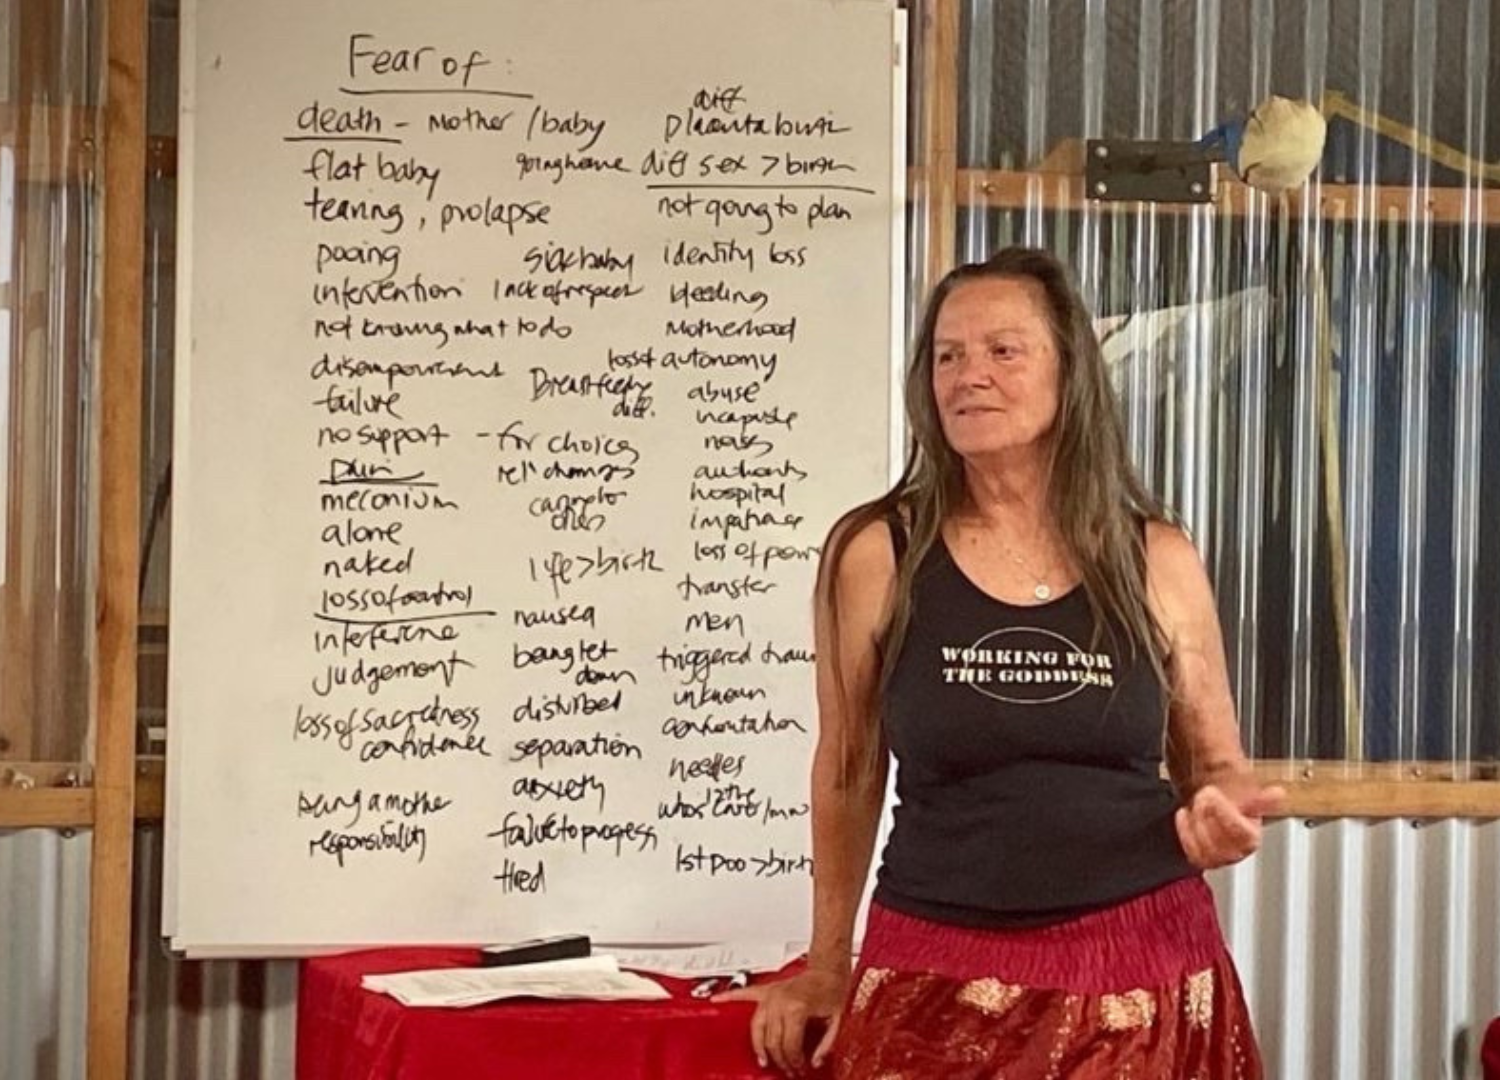 Fear of :
death - Mother / baby
flat baby
tearing, prolapse
pooing
intervention
not knowing what to do
disempowerment
failure
no support - for choices
Pain
meconium
alone
naked
loss of control
interference
judgement
loss of sacredness
confidence
being a mother
responsibility
going home
sick baby
lack of respect
Breastfeeding
diff.
rel' changes
life > birth
nausea
being let
down
disturbed
separation
anxiety
failure to progress
tired
diff
placenta birth
diff sex > birth
not going to plan
identity loss
bleeding
Motherhood
loss of autonomy
abuse
incapable
authority
hospital
impatience
loss of power
transfer
men
triggered
unknown
confrontation
needles
1st poo > birth
WORKING FOR
THE GODDESS